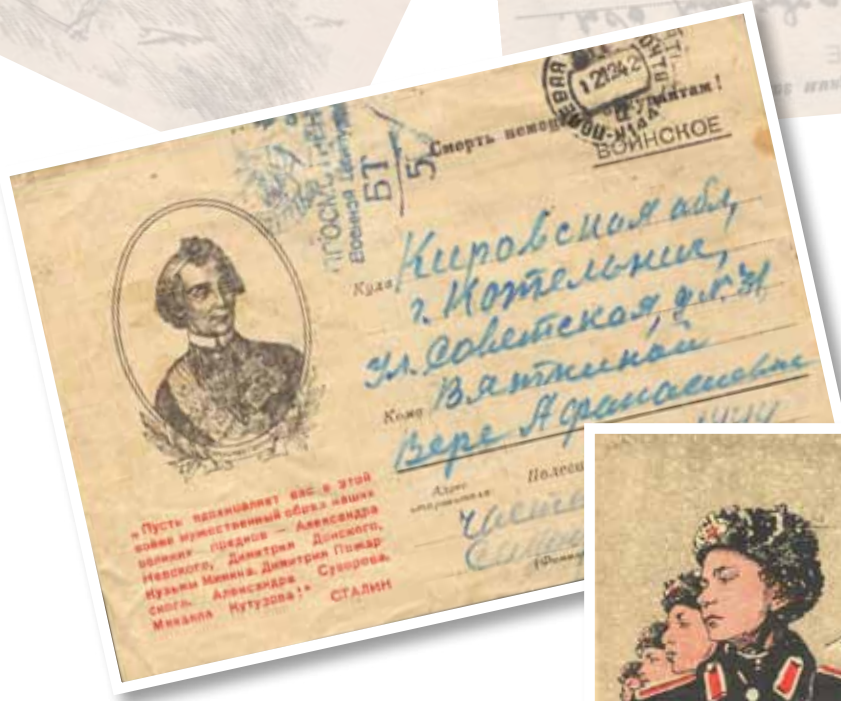 ПОЛЕВАЯ
12 12 42
Смерть немец
ВОИНСКОЕ
ПРОСМОТРЕНО
Военной Цензурой
БТ
5
Куда Кировская обл,
г. Котельнич,
ул. Советская, д.№ 31
Кому Вяткиной
Вере Афанасьевне
Адрес
отправителя
Полевая
„Пусть вдохновляет вас в этой
войне мужественный образ наших
великих предков – Александра
Невского, Димитрия Донского,
Кузьмы Минина, Димитрия Пожар-
ского, Александра Суворова,
Михаила Кутузова!“ СТАЛИН